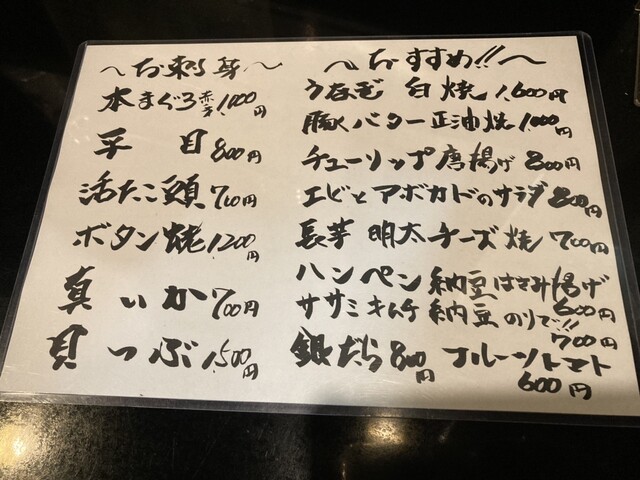 〜お刺身〜
本まぐろ赤身1,000円
平目800円
活たこ頭700円
ボタン海老1,200円
真いか700円
貝つぶ1,500円
〜おすすめ!!〜
うなぎ白焼1,600円
豚バター正油焼1,000円
チューリップ唐揚げ800円
エビとアボカドのサラダ800円
長芋明太チーズ焼700円
ハンペン納豆はさみ揚げ
600円
ササミキムチ納豆のりで!!
700円
銀だら800円
フルーツトマト
600円